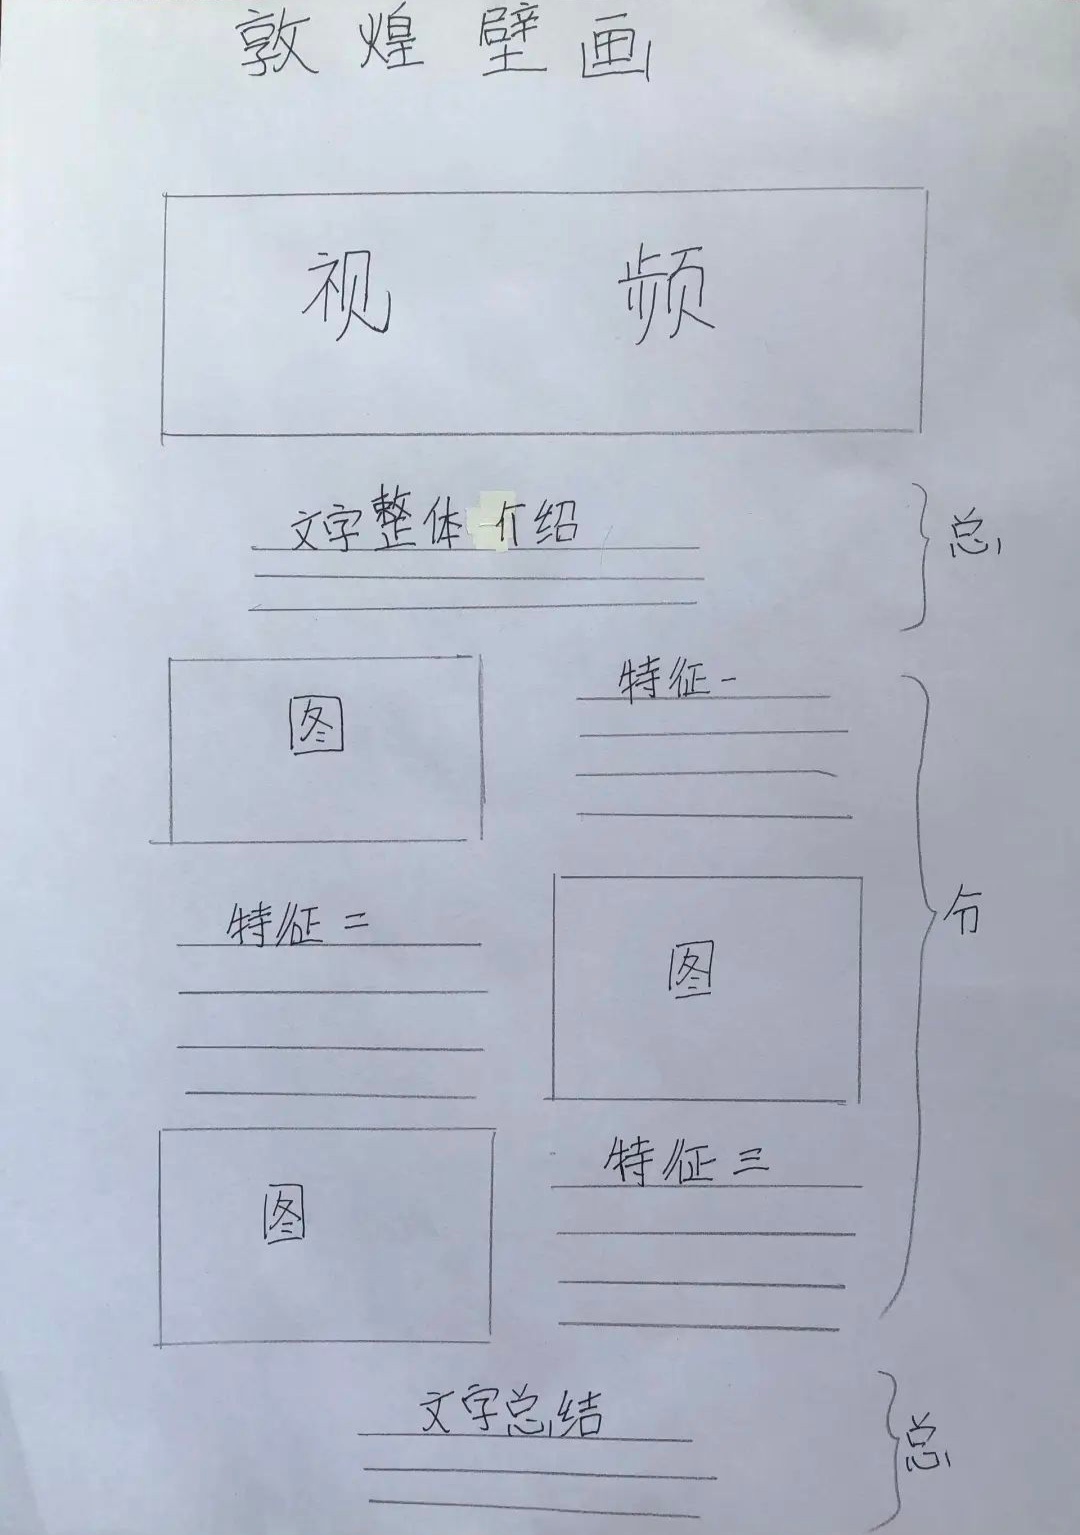 敦煌壁画
视频
文字整体介绍
总
图
特征一
特征二
图
分
图
特征三
文字总结
总